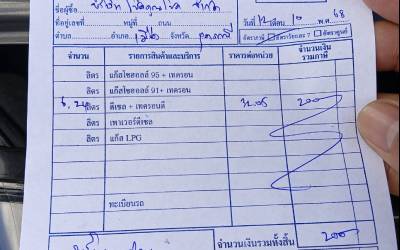 ชื่อผู้ซื้อ บริษัท จำกัด
ที่อยู่เลขที่ หมู่ที่ ถนน วันที่ 12 เดือน 10 พ.ศ. 68
ตำบล อำเภอ เมือง จังหวัด อุดรธานี อัตราภาษี อัตราร้อยละ 7 อัตราศูนย์
จำนวน รายการสินค้าและบริการ ราคาต่อหน่วย จำนวนเงินรวมภาษี
ลิตร แก๊สโซฮอลล์ 95 + เทครอน
ลิตร แก๊สโซฮอลล์ 91+ เทครอน
ลิตร ดีเซล + เทครอนดี 200
ลิตร เพาเวอร์ดีเซล
ลิตร แก๊ส LPG
ทะเบียนรถ
จำนวนเงินรวมทั้งสิ้น 200